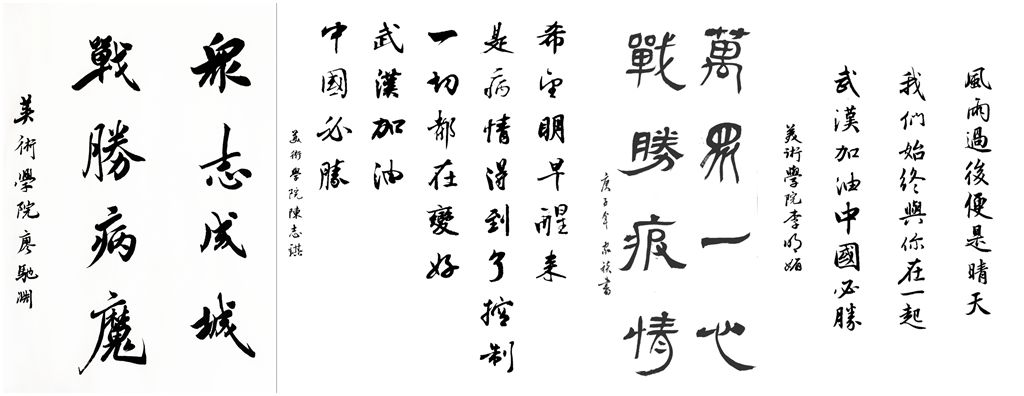 風雨過後便是晴天
我們始終與你在一起
武漢加油中國必勝
美術學院李明媚
萬眾一心
戰勝疫情
庚子年
希望明早醒来
是病情得到了控制
一切都在變好
武漢加油
中國必勝
美術學院陳志
眾志成城
戰勝病魔
美術學院廖馳淵